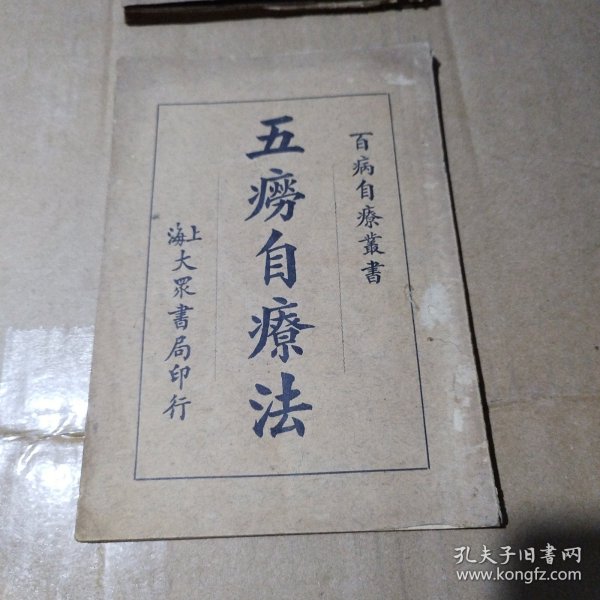 百病自療叢書
五癆自療法
上海大眾書局印行
孔夫子旧书网
www.kongfz.com